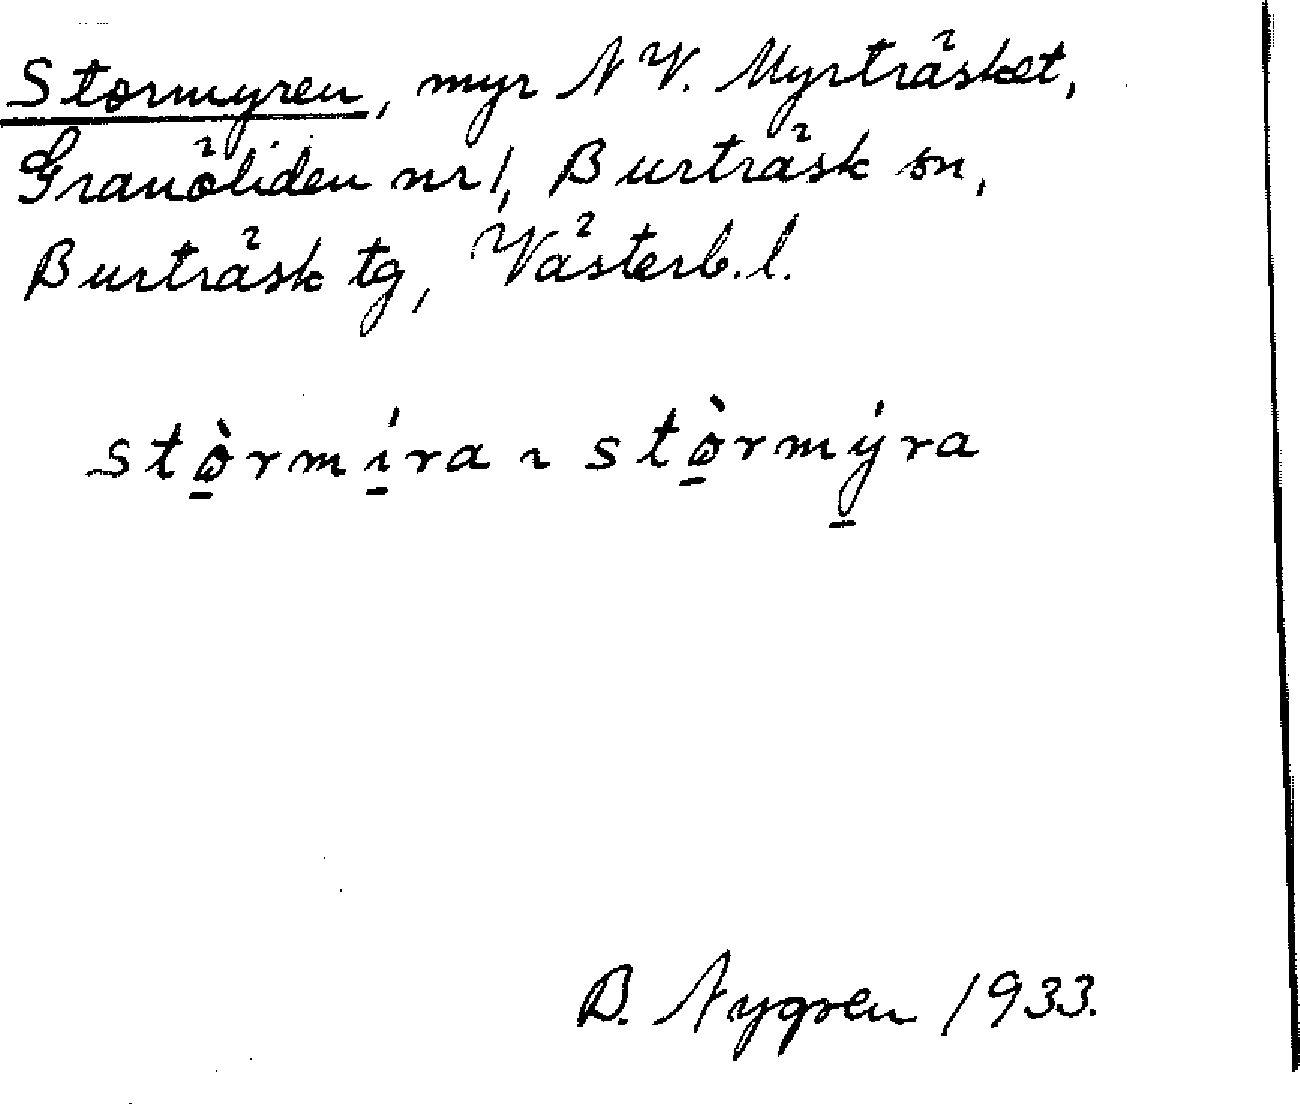 Stormyren, myr N V. Myrträsket,
Granöliden nr 1, Burträsk sn,
Burträsk tg, Västerb. l.
stò̱rmí̱ra ~ stò̱rmý̱ra
B. Nygren 1933.